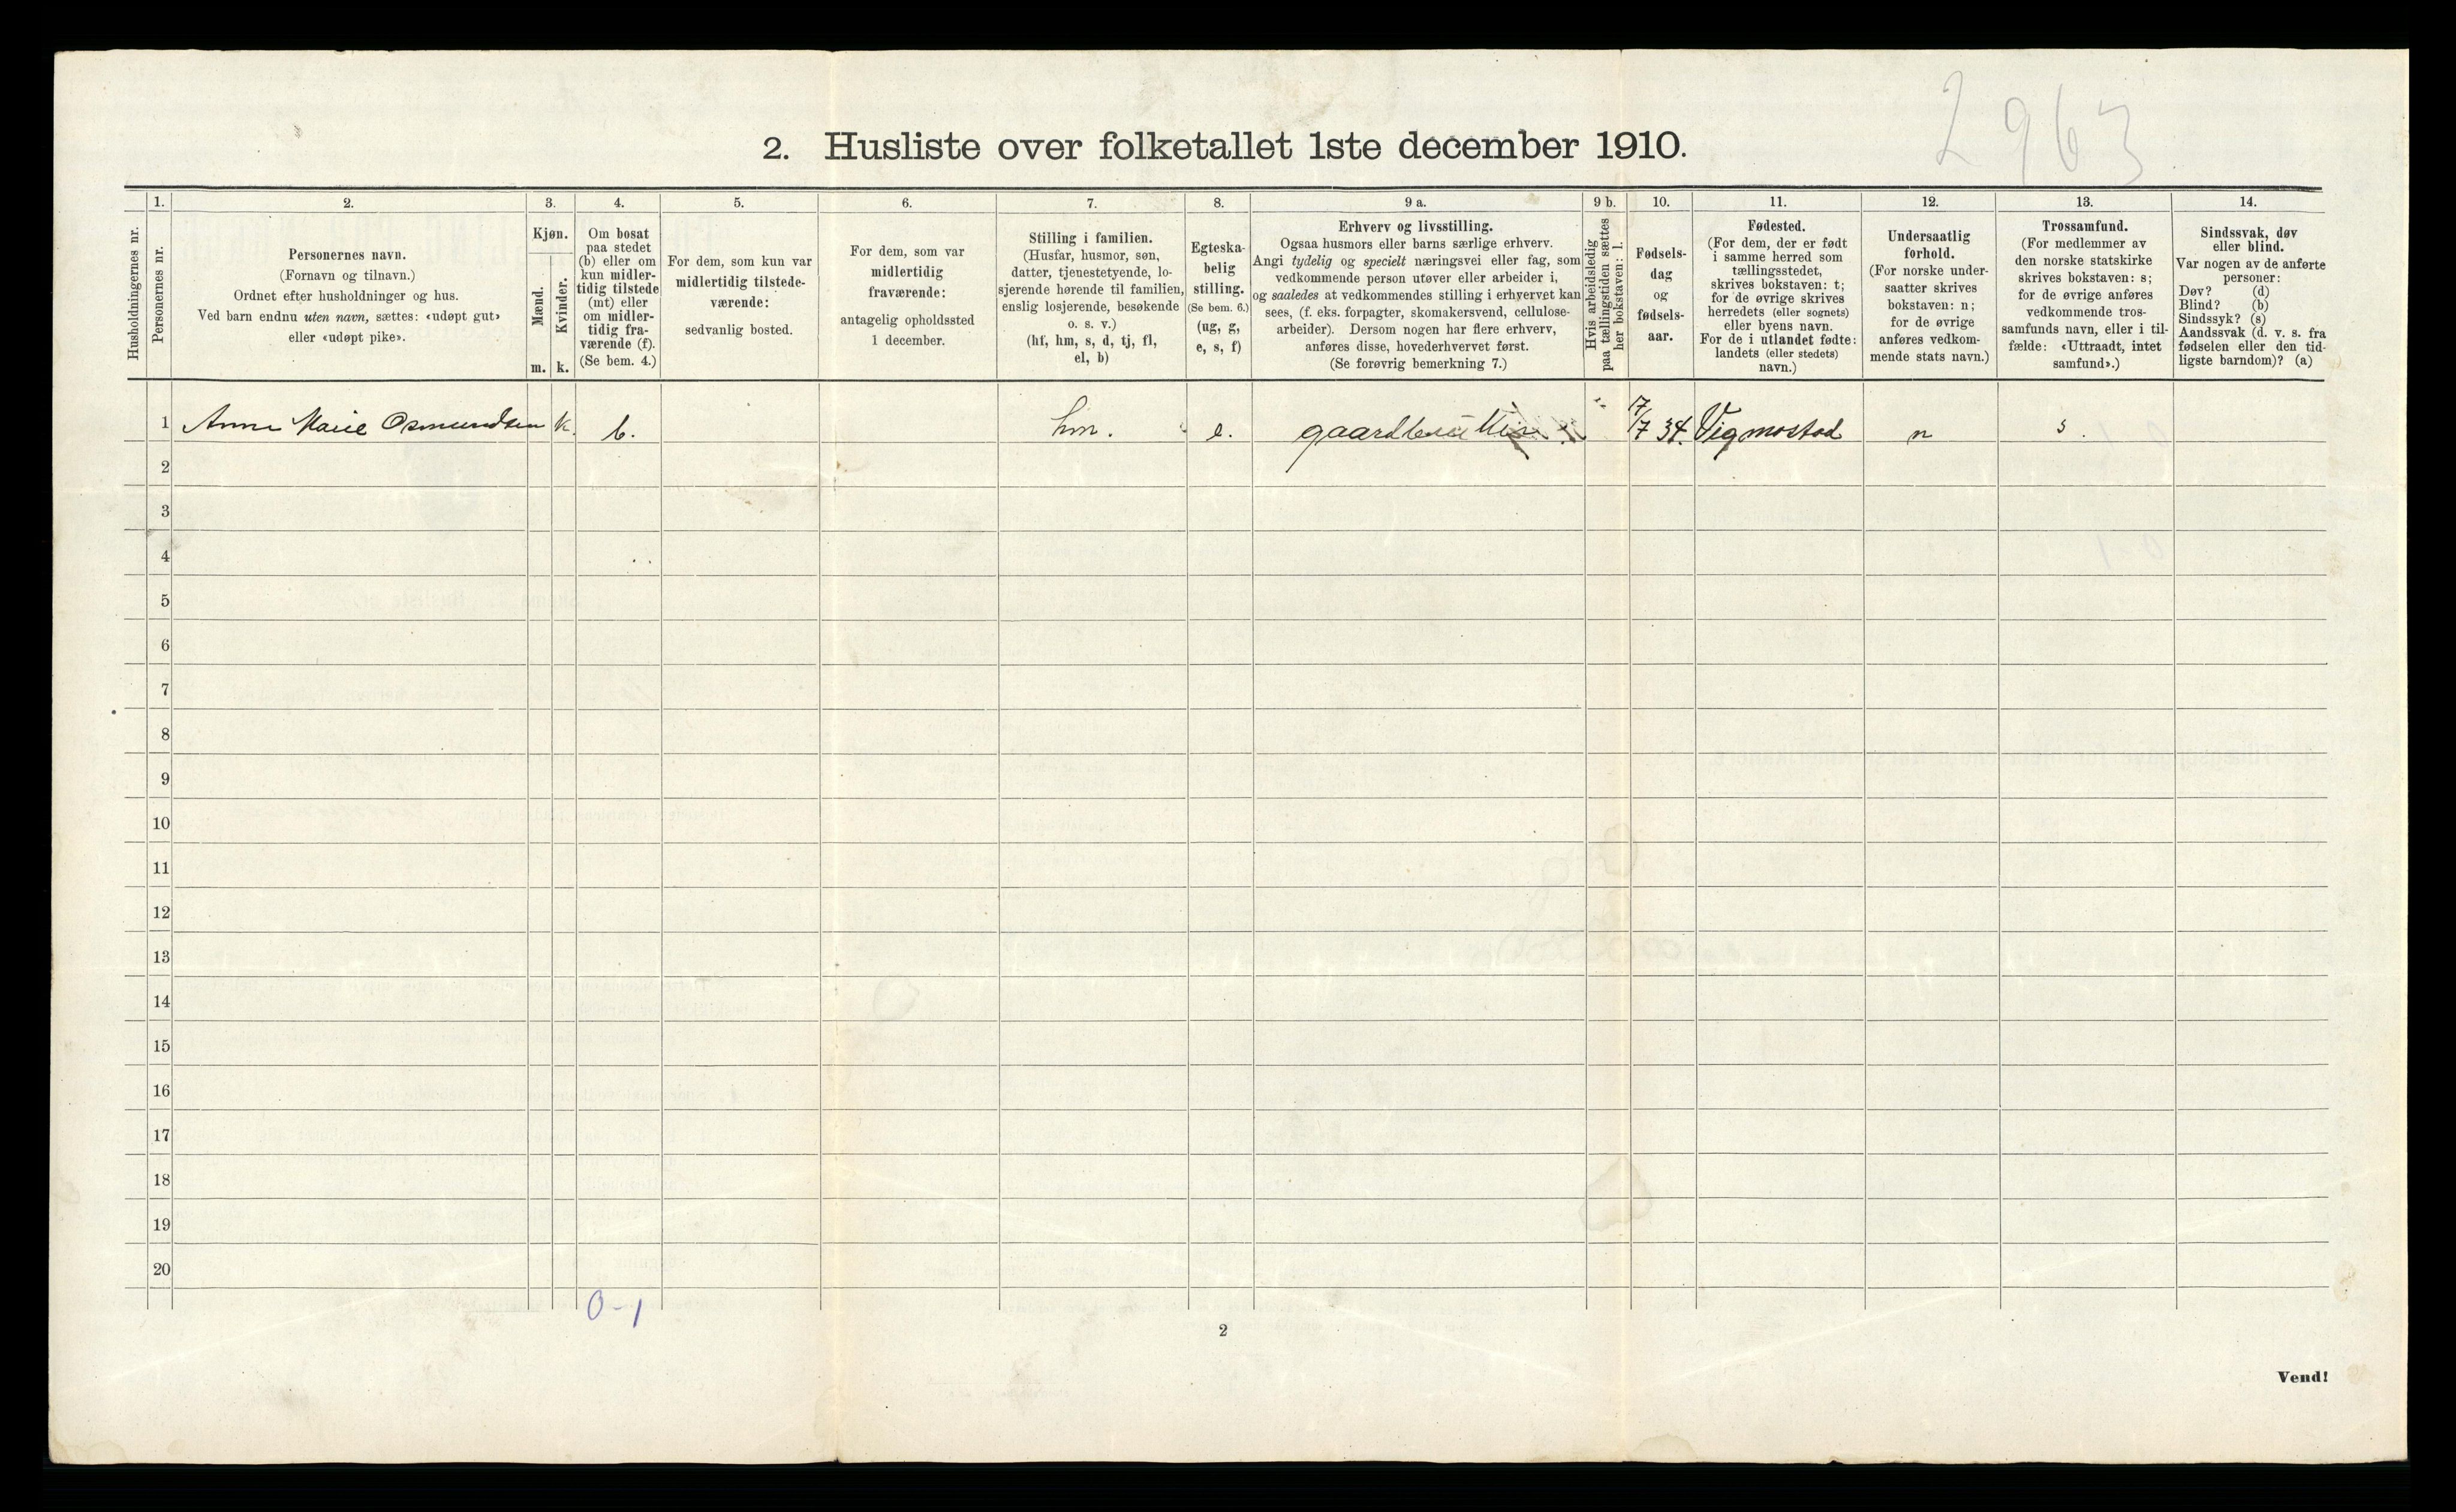 2963
2. Husliste over folketallet 1ste december 1910.
Husholdningernes nr.
1.
Personernes nr.
2.
Personernes navn.
(Fornavn og tilnavn.)
Ordnet efter husholdninger og hus.
Ved barn endnu uten navn, sættes: «udøpt gut»
eller «udøpt pike».
3.
Kjøn.
Mænd.
Kvinder.
m. k.
4.
Om bosat
paa stedet
(b) eller om
kun midler-
tidig tilstede
(mt) eller
om midler-
tidig fra-
værende (f).
(Se bem. 4.)
5.
For dem, som kun var
midlertidig tilstede-
værende:
sedvanlig bosted.
6.
For dem, som var
midlertidig
fraværende:
antagelig opholdssted
1 december.
7.
Stilling i familien.
(Husfar, husmor, søn,
datter, tjenestetyende, lo-
sjerende hørende til familien,
enslig losjerende, besøkende
o. s. v.)
(hf, hm, s, d, tj, fl,
el, b)
8.
Egteska-
belig
stilling.
(Se bem. 6.)
(ug, g,
e, s, f)
9 a.
Erhverv og livsstilling.
Ogsaa husmors eller barns særlige erhverv.
Angi tydelig og specielt næringsvei eller fag, som
vedkommende person utøver eller arbeider i,
og saaledes at vedkommendes stilling i erhvervet kan
sees, (f. eks. forpagter, skomakersvend, cellulose-
arbeider). Dersom nogen har flere erhverv,
anføres disse, hovederhvervet først.
(Se forøvrig bemerkning 7.)
9 b.
Hvis arbeidsledig
paa tællingstiden sættes
her bokstaven: l.
10.
Fødsels-
dag
og
fødsels-
aar.
11.
Fødested.
(For dem, der er født
i samme herred som
tællingsstedet,
skrives bokstaven: t;
for de øvrige skrives
herredets (eller sognets)
eller byens navn.
For de i utlandet fødte:
landets (eller stedets)
navn.)
12.
Undersaatlig
forhold.
(For norske under-
saatter skrives
bokstaven: n;
for de øvrige
anføres vedkom-
mende stats navn.)
13.
Trossamfund.
(For medlemmer av
den norske statskirke
skrives bokstaven: s;
for de øvrige anføres
vedkommende tros-
samfunds navn, eller i til-
fælde: «Uttraadt, intet
samfund».)
14.
Sindssvak, døv
eller blind.
Var nogen av de anførte
personer:
Døv? (d)
Blind? (b)
Sindssyk? (s)
Aandssvak (d. v. s. fra
fødselen eller den tid-
ligste barndom)? (a)
1 Anne Marie Osmundsen k. b. hm. e. 17/7 34. Vigmostad n s.
2
3
4
5
6
7
8
9
10
11
12
13
14
15
16
17
18
19
20
0-1
2
Vend!